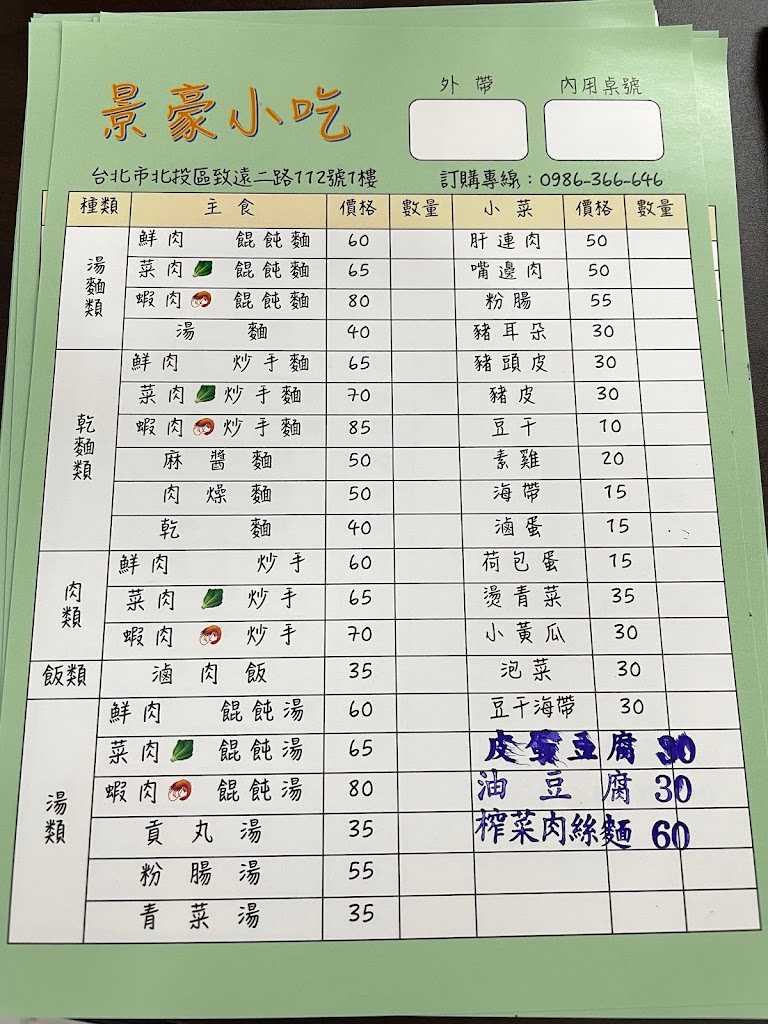 景豪小吃
外帶 內用桌號
台北市北投區致遠二路112號1樓 訂購專線：0986-366-646
種類 主食 價格 數量 小菜 價格 數量
湯麵類
鮮肉 餛飩麵 60 肝連肉 50
菜肉 餛飩麵 65 嘴邊肉 50
蝦肉 餛飩麵 80 粉腸 55
湯麵 40 豬耳朵 30
乾麵類
鮮肉 炒手麵 65 豬頭皮 30
菜肉 炒手麵 70 豬皮 30
蝦肉 炒手麵 85 豆干 10
麻醬麵 50 素雞 20
肉燥麵 50 海帶 15
乾麵 40 滷蛋 15
肉類
鮮肉 炒手 60 荷包蛋 15
菜肉 炒手 65 燙青菜 35
蝦肉 炒手 70 小黃瓜 30
飯類 滷肉飯 35 泡菜 30
湯類
鮮肉 餛飩湯 60 豆干海帶 30
菜肉 餛飩湯 65 皮蛋豆腐 30
蝦肉 餛飩湯 80 油豆腐 30
貢丸湯 35 榨菜肉絲麵 60
粉腸湯 55
青菜湯 35